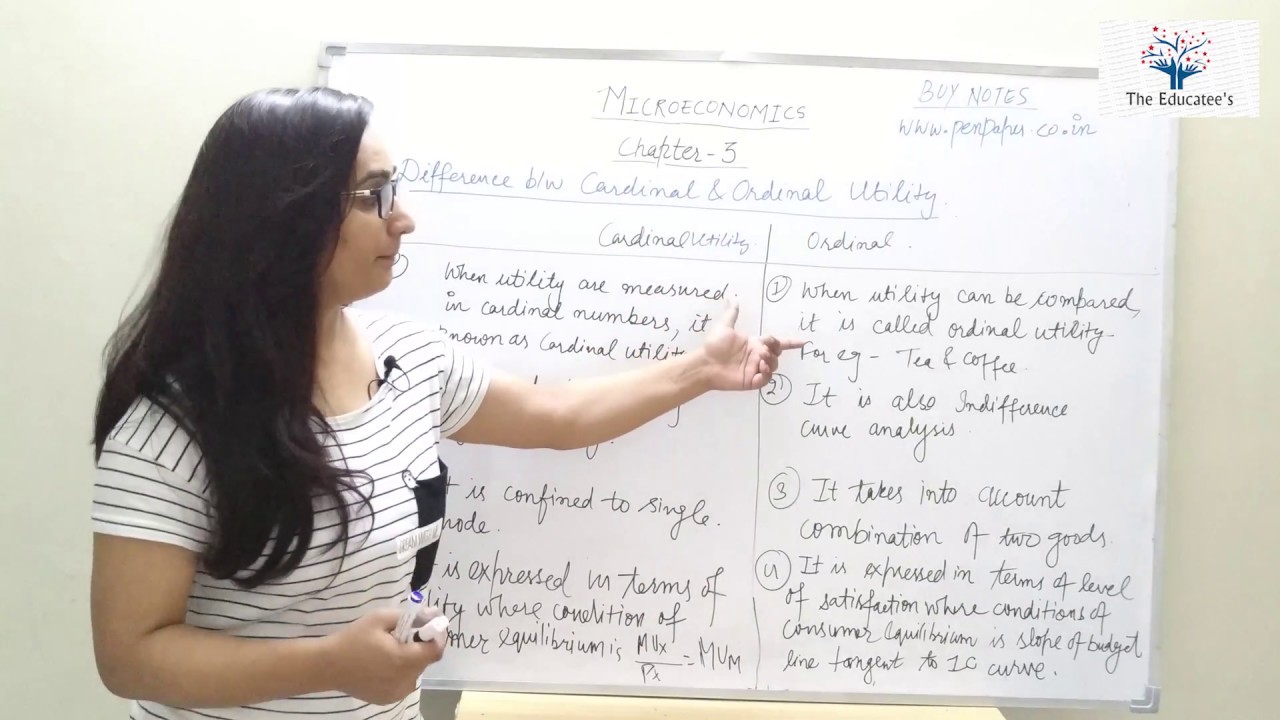 The Educatee's
MICROECONOMICS
BUY NOTES
www.penpaper.co.in
Chapter-3
Difference b/w Cardinal & Ordinal Utility.
Cardinal Utility
When utility are measured
in cardinal numbers, it
known as Cardinal
is confined to single.
is expressed in terms of
where condition of
equilibrium is MUx/Px = MUM
Ordinal.
① When utility can be compared,
it is called ordinal utility-
For eg - Tea & Coffee.
② It is also Indifference
curve analysis
③ It takes into account
combination of two goods.
④ It is expressed in terms of level
of satisfaction where conditions of
consumer equilibrium is slope of budget
line tangent to IC curve.